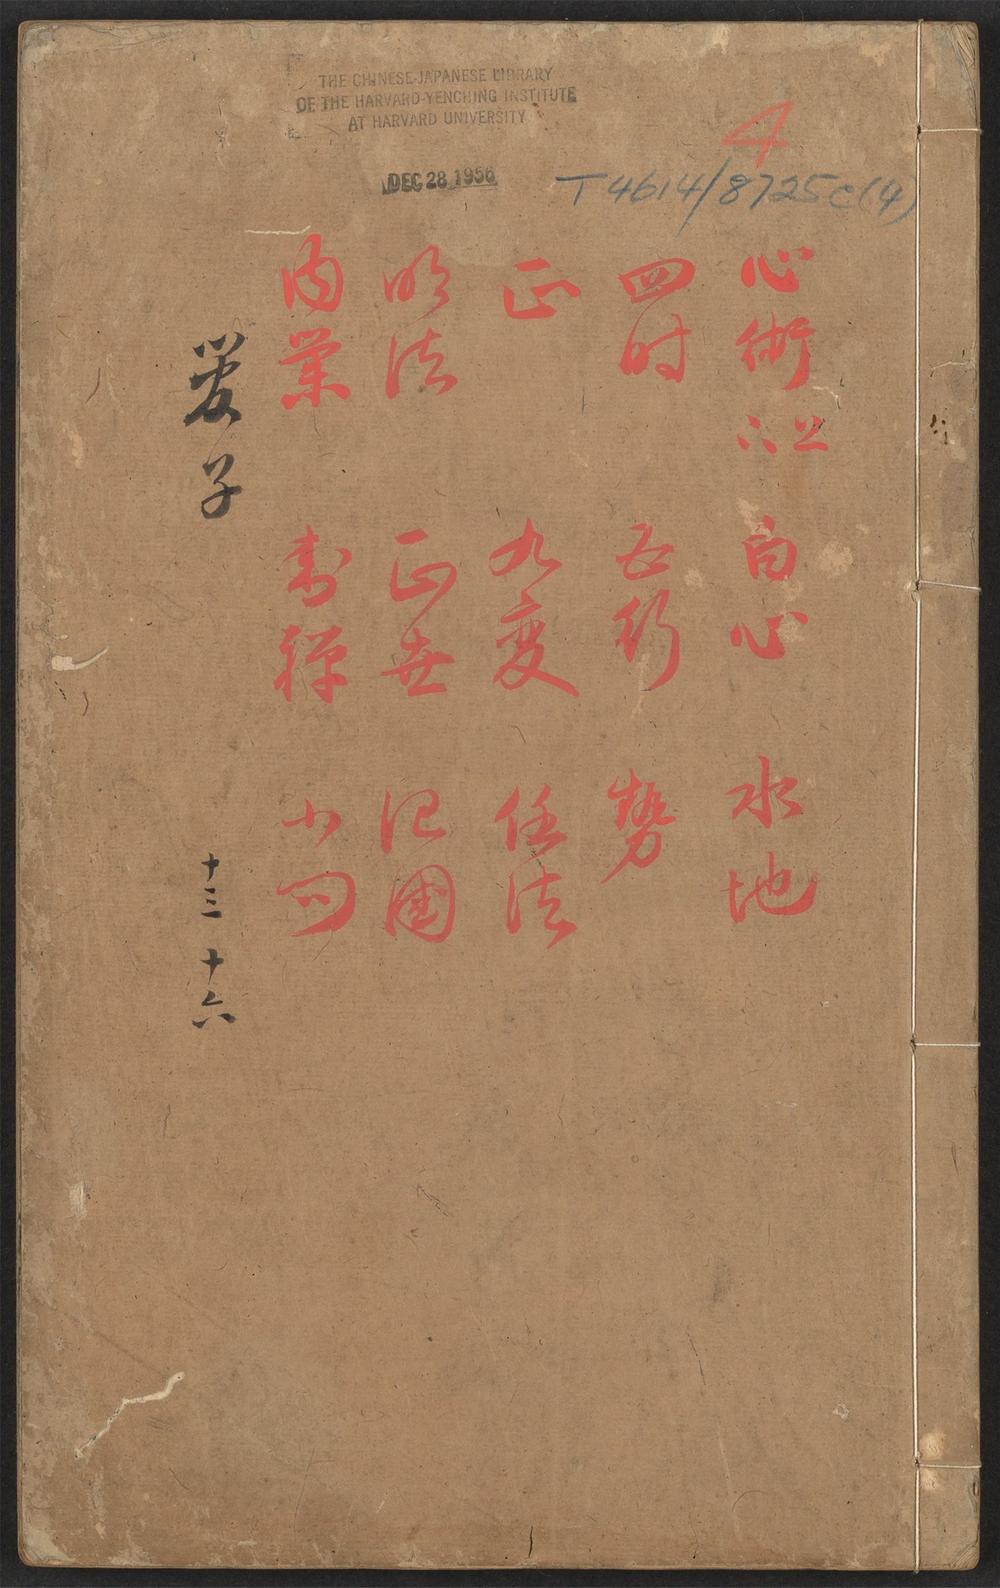 THE CHINESE-JAPANESE LIBRARY
OF THE HARVARD-YENCHING INSTITUTE
AT HARVARD UNIVERSITY
DEC 28 1956
4
T 4614/8725c(4)
心術上下 白心 水地
四时 五行 勢
正 九変 任法
明法 正世 治國
内業 封禪 小問
管子 十三 十六